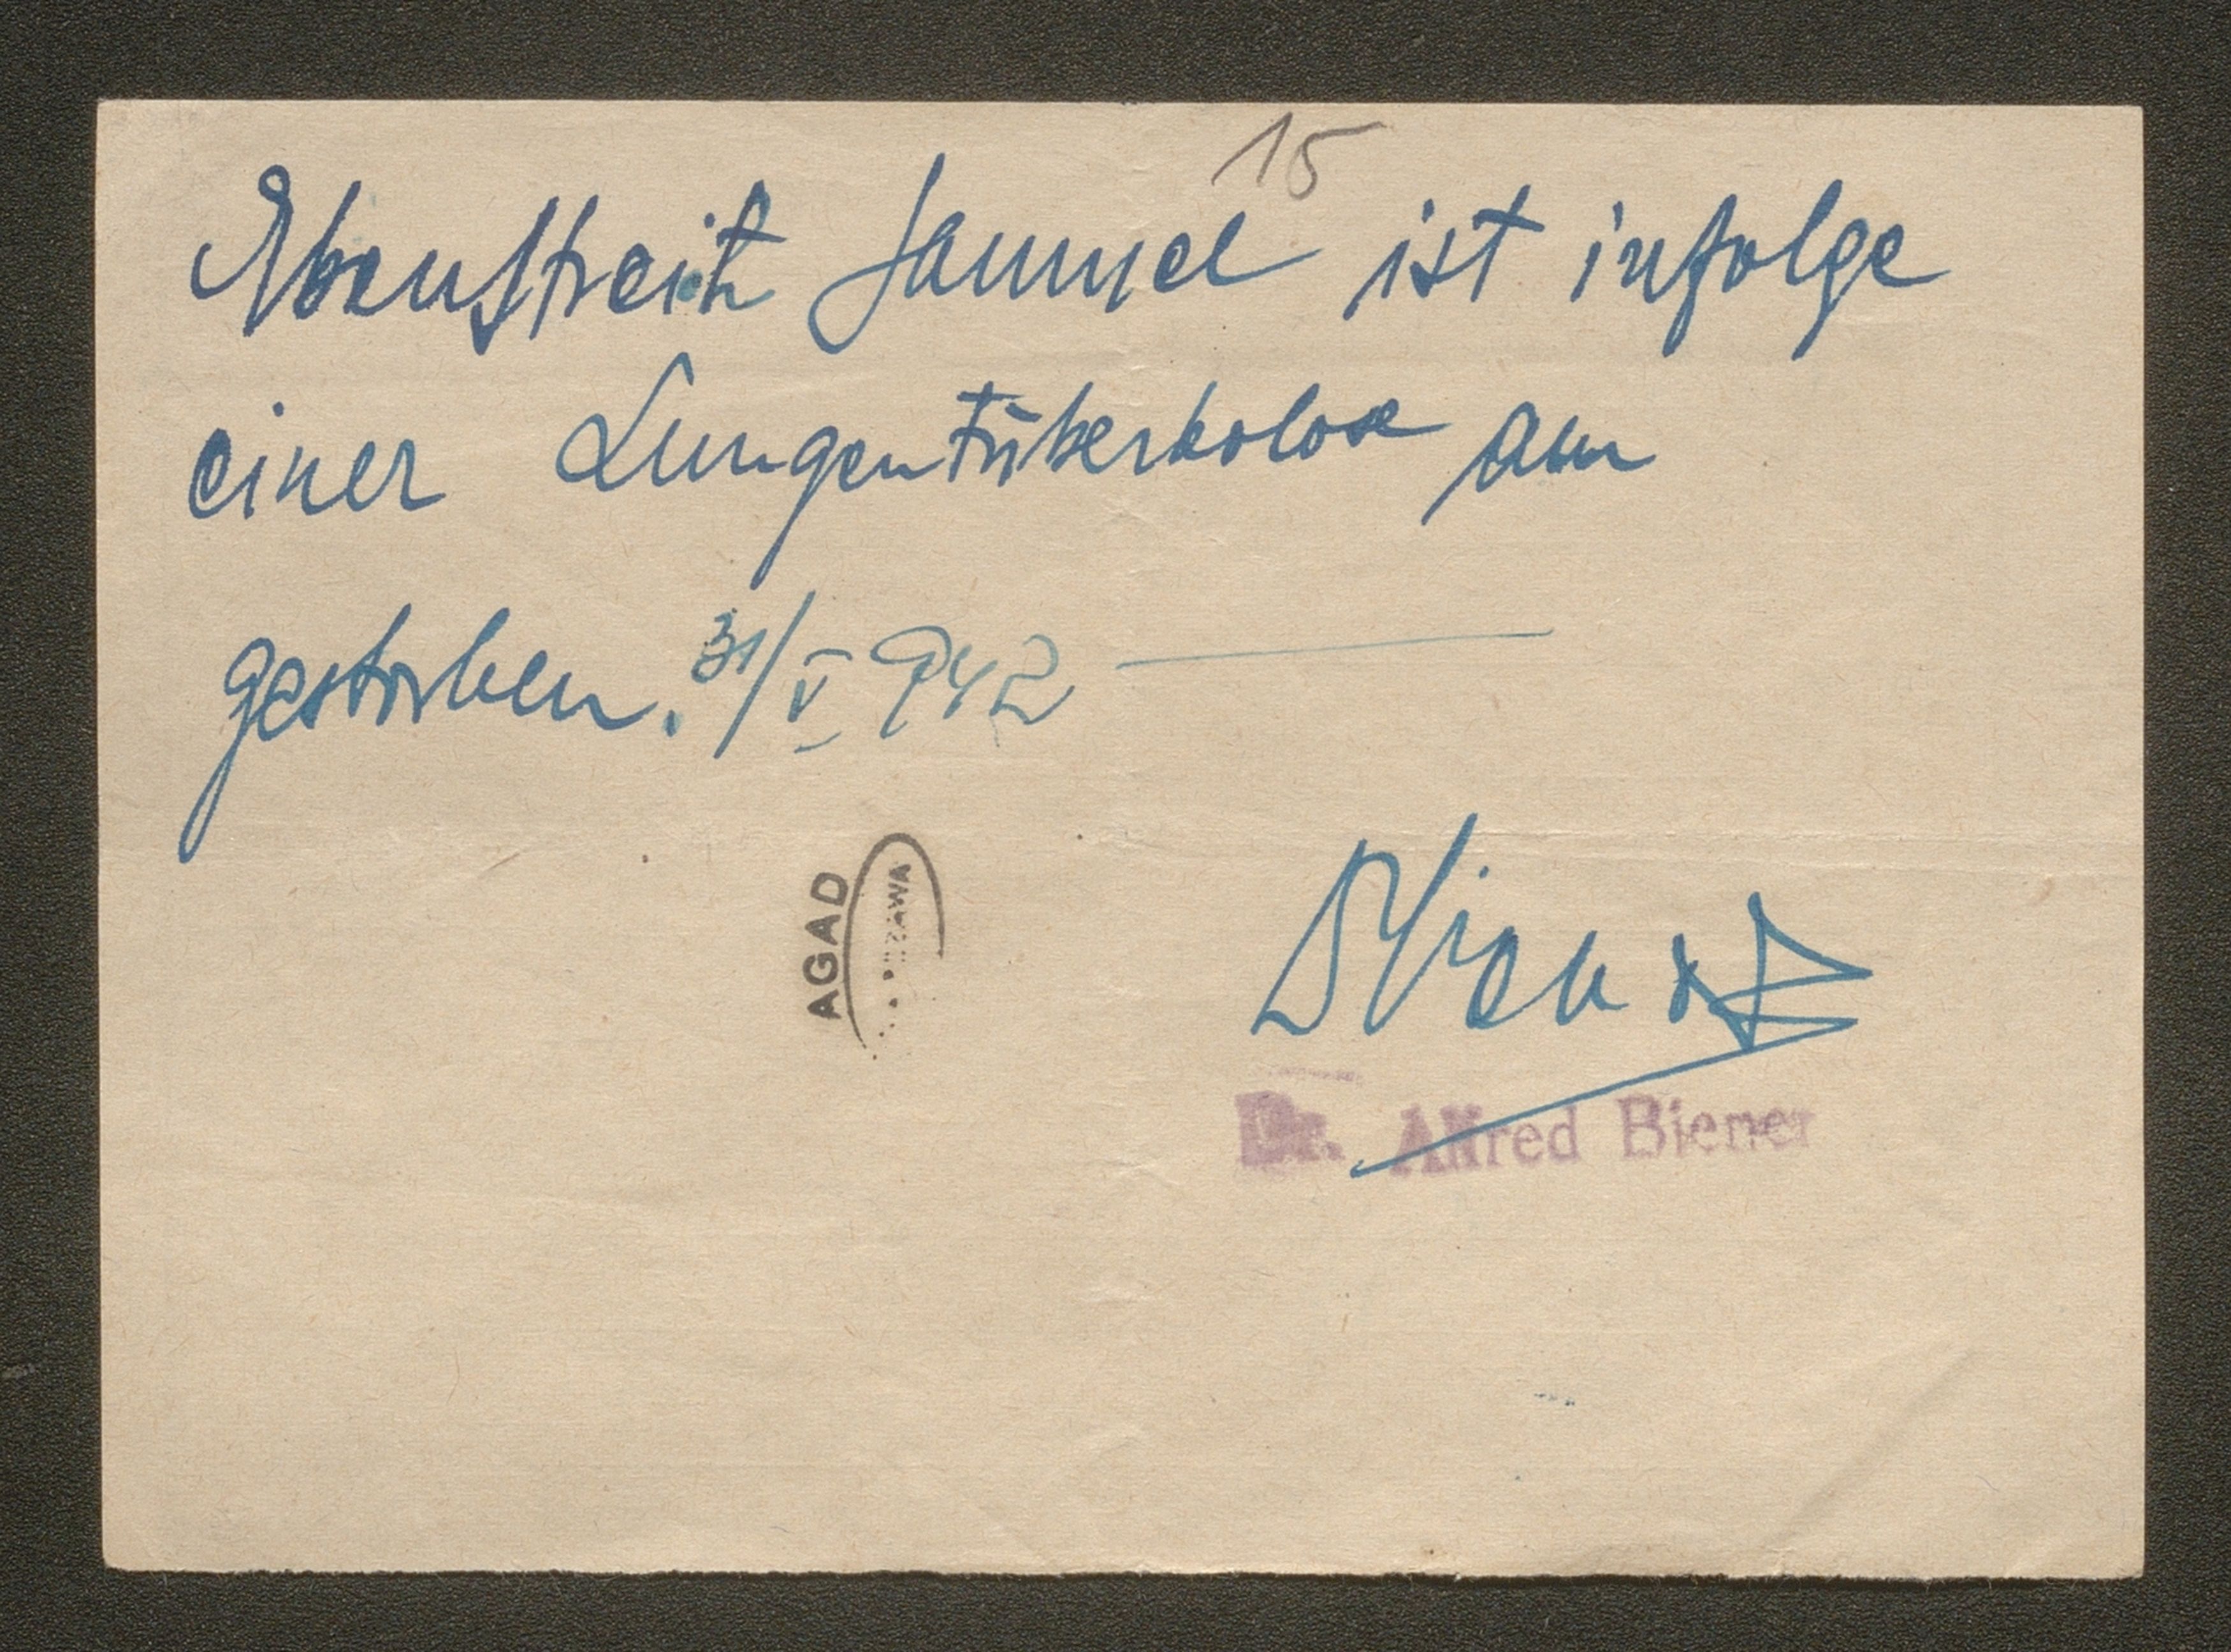 15
Ebenstreit Samuel ist infolge
einer Lungentüberkolose am
gestorben. 31/V 942
AGAD
WARSZAWA
Biener
Dr. Alfred Biener